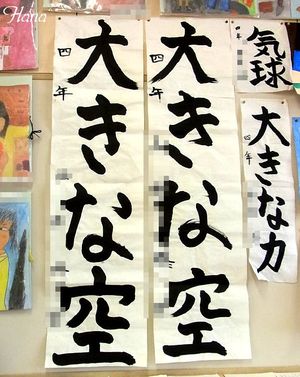 Hana
大きな空
四年
大きな空
四年
気球
四年
大きな力
四年